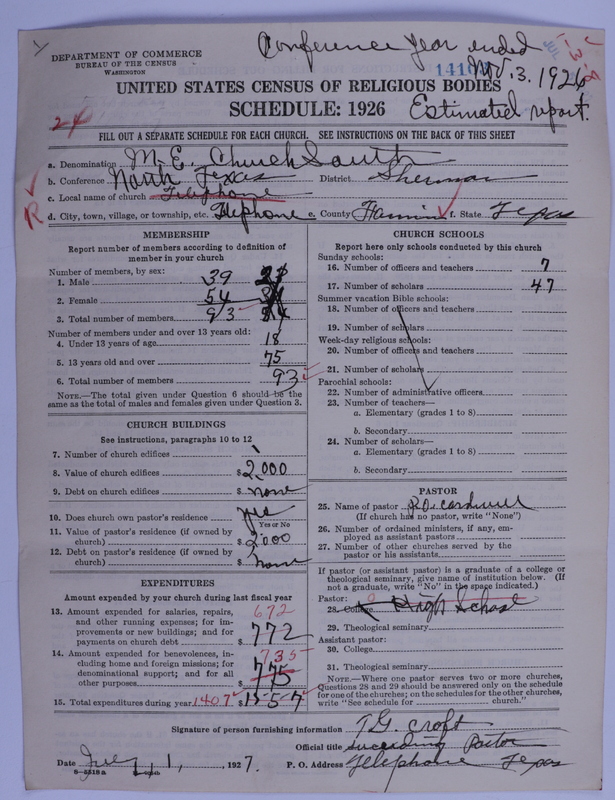 Conference Year ended
Nov. 3. 1926
Estimated report.
DEPARTMENT OF COMMERCE
BUREAU OF THE CENSUS
WASHINGTON
UNITED STATES CENSUS OF RELIGIOUS BODIES
SCHEDULE: 1926
FILL OUT A SEPARATE SCHEDULE FOR EACH CHURCH. SEE INSTRUCTIONS ON THE BACK OF THIS SHEET
a. Denomination M. E. Church South
b. Conference North Texas District Sherman
c. Local name of church Telephone
d. City, town, village, or township, etc. Telephone e. County Fannin f. State Texas
MEMBERSHIP
Report number of members according to definition of
member in your church
Number of members, by sex:
1. Male 39
2. Female 54
3. Total number of members 93
Number of members under and over 13 years old:
4. Under 13 years of age 18
5. 13 years old and over 75
6. Total number of members 93
NOTE.—The total given under Question 6 should be the
same as the total of males and females given under Question 3.
CHURCH BUILDINGS
See instructions, paragraphs 10 to 12
7. Number of church edifices 1
8. Value of church edifices $ 2,000
9. Debt on church edifices $ none
10. Does church own pastor's residence yes
Yes or No
11. Value of pastor's residence (if owned by
church) $ 2000
12. Debt on pastor's residence (if owned by
church) $ none
EXPENDITURES
Amount expended by your church during last fiscal year
13. Amount expended for salaries, repairs, 672
and other running expenses; for im-
provements or new buildings; and for
payments on church debt $ 772
14. Amount expended for benevolences, in- 735
cluding home and foreign missions; for
denominational support; and for all
other purposes $ 775
15. Total expenditures during year 1407 $ 1557
CHURCH SCHOOLS
Report here only schools conducted by this church
Sunday schools:
16. Number of officers and teachers 7
17. Number of scholars 47
Summer vacation Bible schools:
18. Number of officers and teachers
19. Number of scholars
Week-day religious schools:
20. Number of officers and teachers
21. Number of scholars
Parochial schools:
22. Number of administrative officers
23. Number of teachers—
a. Elementary (grades 1 to 8)
b. Secondary
24. Number of scholars—
a. Elementary (grades 1 to 8)
b. Secondary
PASTOR
25. Name of pastor
(If church has no pastor, write "None")
26. Number of ordained ministers, if any, em-
ployed as assistant pastors
27. Number of other churches served by the
pastor or his assistants
If pastor (or assistant pastor) is a graduate of a college or
theological seminary, give name of institution below. (If
not a graduate, write "No" in the space indicated.)
Pastor: 0
28. College High School
29. Theological seminary
Assistant pastor:
30. College
31. Theological seminary
NOTE.—Where one pastor serves two or more churches,
Questions 28 and 29 should be answered only on the schedule
for one of the churches; on the schedules for the other churches,
write "See schedule for church."
Signature of person furnishing information T. G. Croft
Official title succeeding Pastor
Date July 1, 1927. P. O. Address Telephone Texas